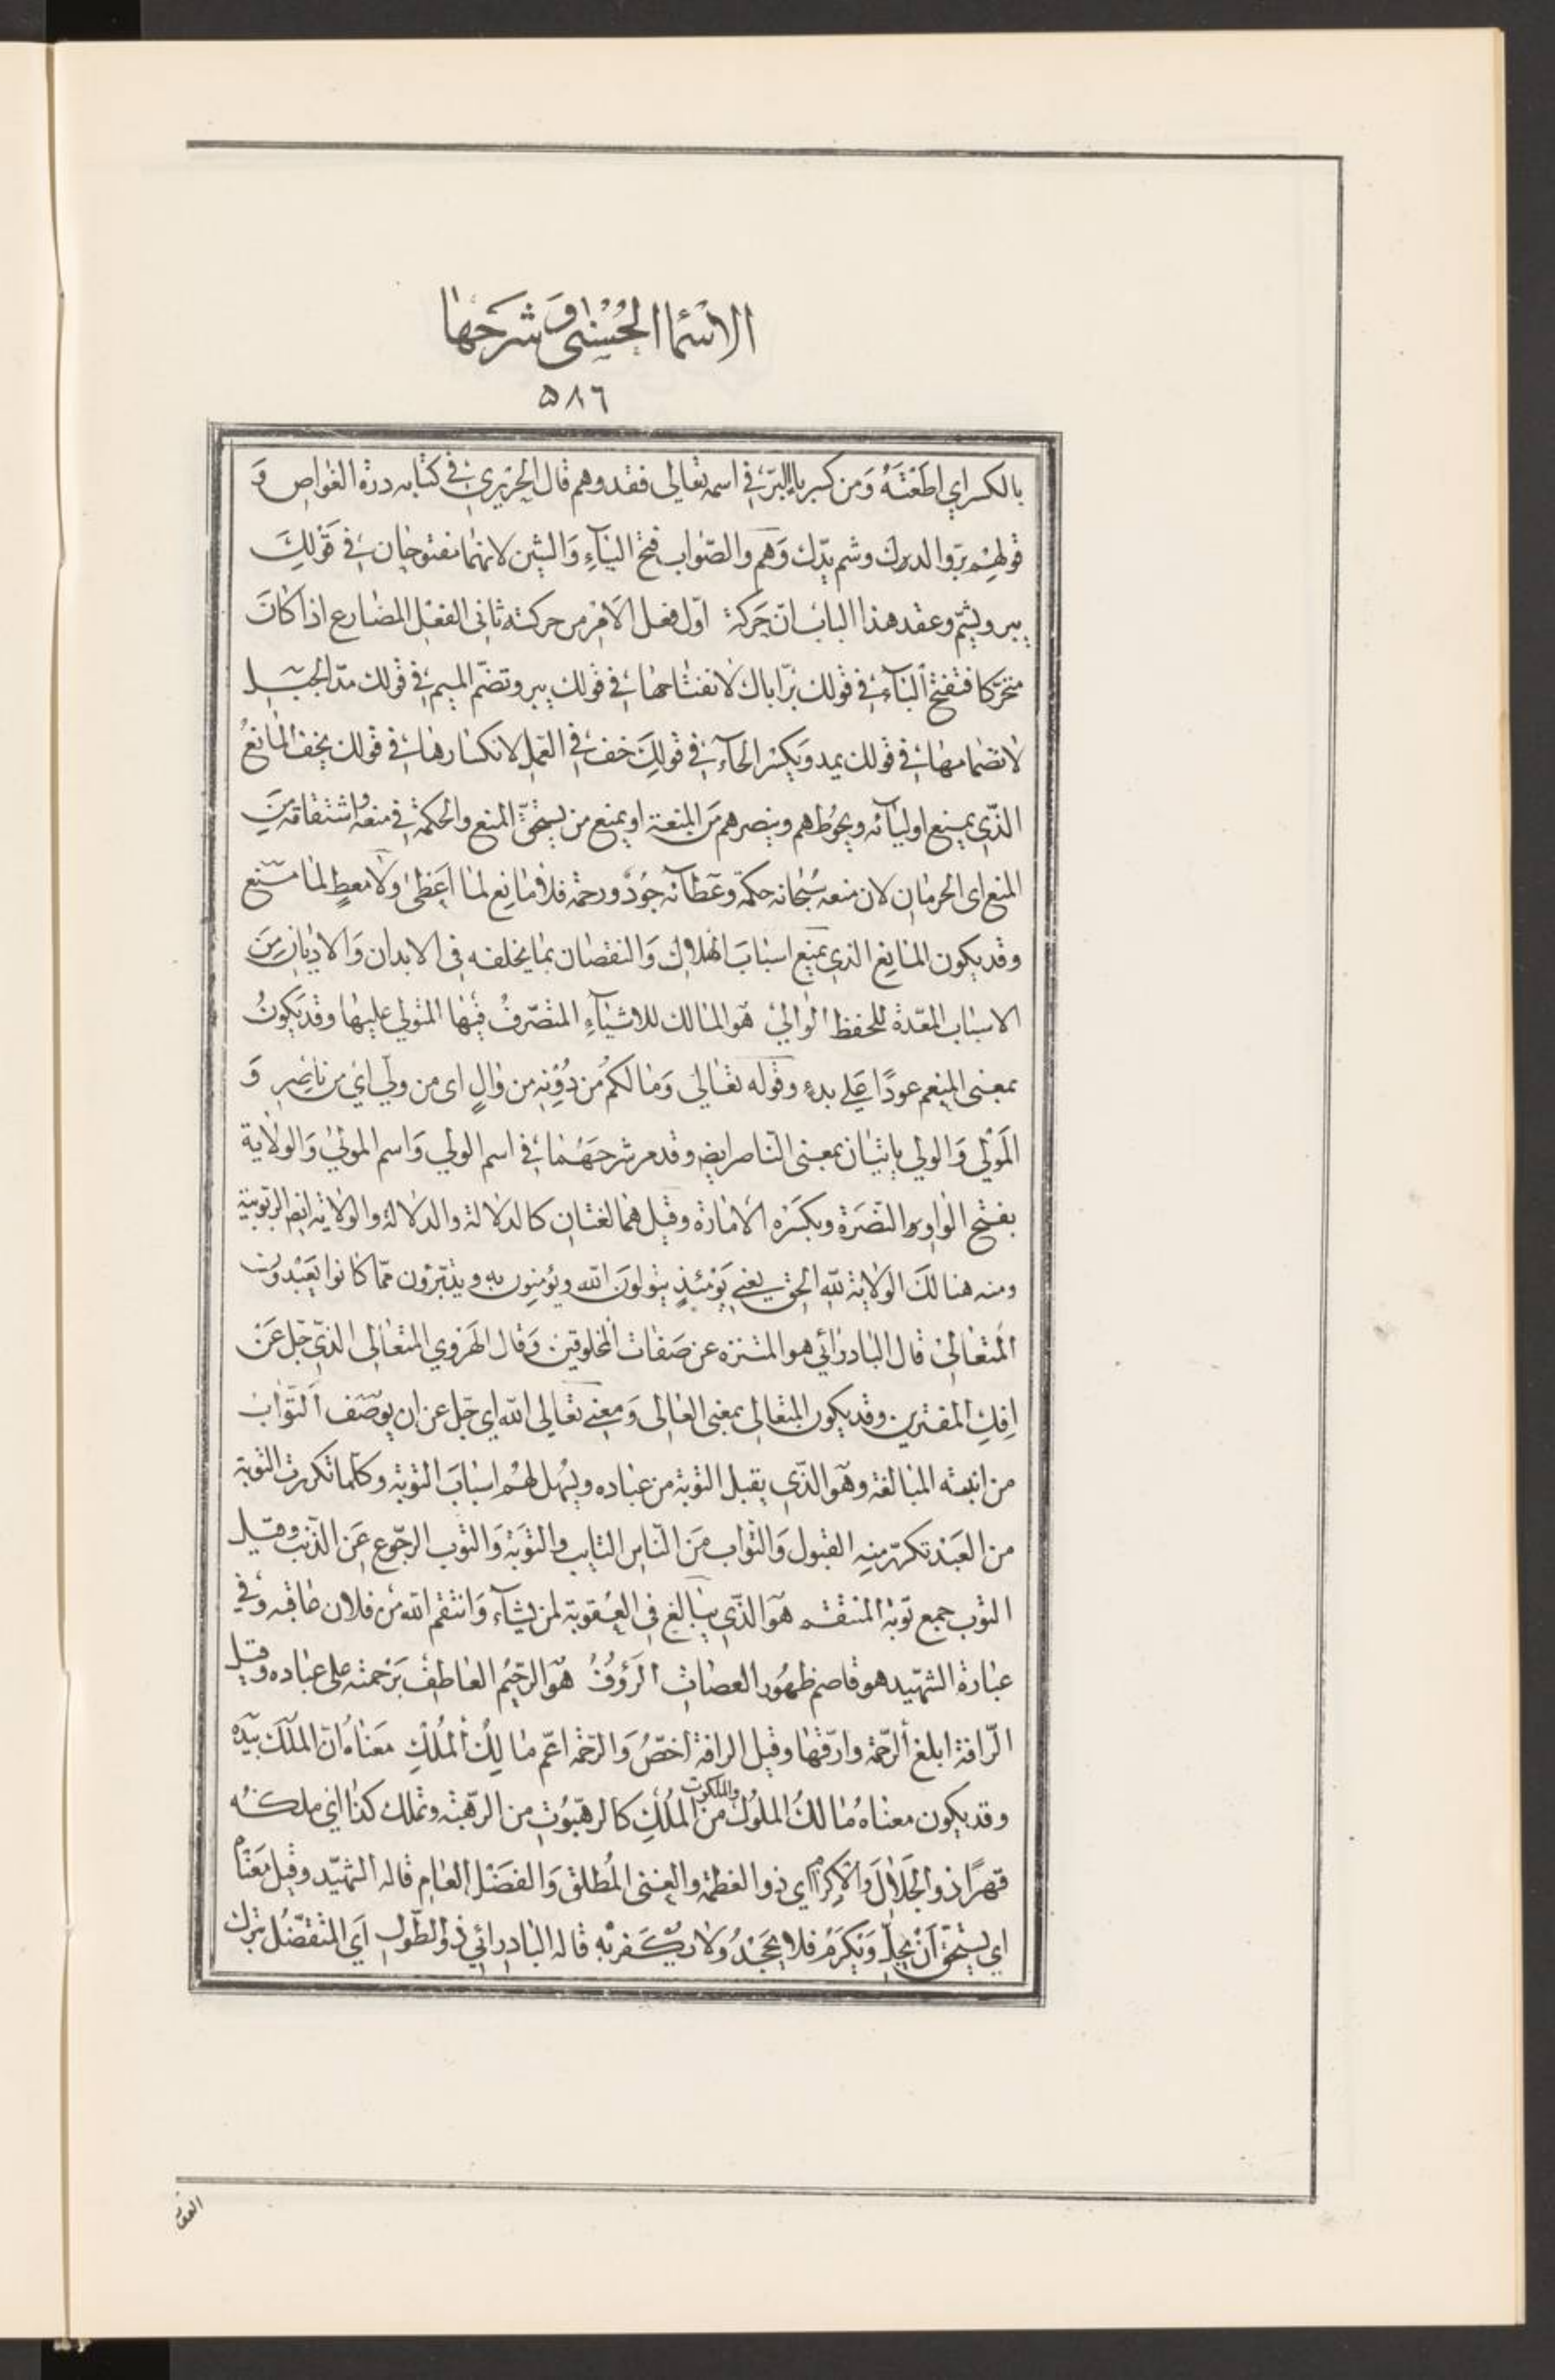 الاسما الحسنى وشرحها
٥٨٦
بالكسر اي اطعته ومن كسر باء البر في اسمه تعالى فقد وهم قال الحريري في كتابه درة الغواص و
قولهم بر والدك وشم يدك وهم والصواب فتح الباء والشين لانهما مفتوحان في قولك
يبر ويشم وعقد هذا الباب ان حركة اول فعل الامر من حركته ثاني الفعل المضارع اذا كان
متحركا فتفتح الباء في قولك بر اباك لانفتاحها في قولك يبر وتضم الميم في قولك مد الحبل
لانضمامها في قولك يمد ويكسر الخاء في قولك خف في العمل لانكسارها في قولك يخف المانع
الذي يمنع اوليائه ويحوطهم وينصرهم من المنعة او يمنع من يستحق المنع والحكمة في منعه واشتقاقه من
المنع اى الحرمان لان منعه سبحانه حكمة وعطائه جود ورحمة فلا مانع لما اعطى ولا معط لما منع
وقد يكون المانع الذي يمنع اسباب الهلاك والنقصان بما يخلفه في الابدان والاديان من
الاسباب المعدة للحفظ الوالي هو المالك للاشياء المتصرف فيها المتولي عليها وقد يكون
بمعنى المنعم عودا على بدء وقوله تعالى وما لكم من دونه من وال اى من ولي اي من ناصر و
المولي والولي ياتيان بمعنى الناصر ايضا وقد مر شرحهما في اسم الولي واسم المولى والولاية
بفتح الواو النصرة وبكسره الامارة وقيل هما لغتان كالدلالة والدلالة والولاية ايضا الربوبية
ومنه هنالك الولاية لله الحق يعني يومئذ يتولون الله ويؤمنون به ويتبرؤن مما كانوا يعبدون
المتعالى قال البادرائي هو المتنزه عن صفات المخلوقين وقال الهروي المتعالى الذي جل عن
افك المفترين وقد يكون المتعالى بمعنى العالى ومعنى تعالى الله اي جل عن ان يوصف التواب
من ابنية المبالغة وهو الذي يقبل التوبة من عباده ويسهل لهم اسباب التوبة وكلما تكررت التوبة
من العبد تكرر منه القبول والتواب من الناس التايب والتوبة والتوب الرجوع عن الذنب وقيل
التوب جمع توبة المنتقم هو الذي يبالغ في العقوبة لمن يشاء وانتقم الله من فلان عاقبه وفي
عبارة الشهيد هو قاصم ظهور العصاة الرؤوف هو الرحيم العاطف برحمته على عباده وقيل
الرافة ابلغ الرحمة وارقها وقيل الرافة اخص والرحمة اعم مالك الملك معناه ان الملك بيده
وقد يكون معناه مالك الملوك والملكوت من الملك كالرهبوت من الرهبة وتملك كذا اي ملكه
قهرا ذو الجلال والاكرام اي ذو العظمة والغنى المطلق والفضل العام قاله الشهيد وقيل معناه
اي يستحق ان يجل ويكرم فلا يجحد ولا يكفر به قاله البادرائي ذو الطول اي المتفضل بترك